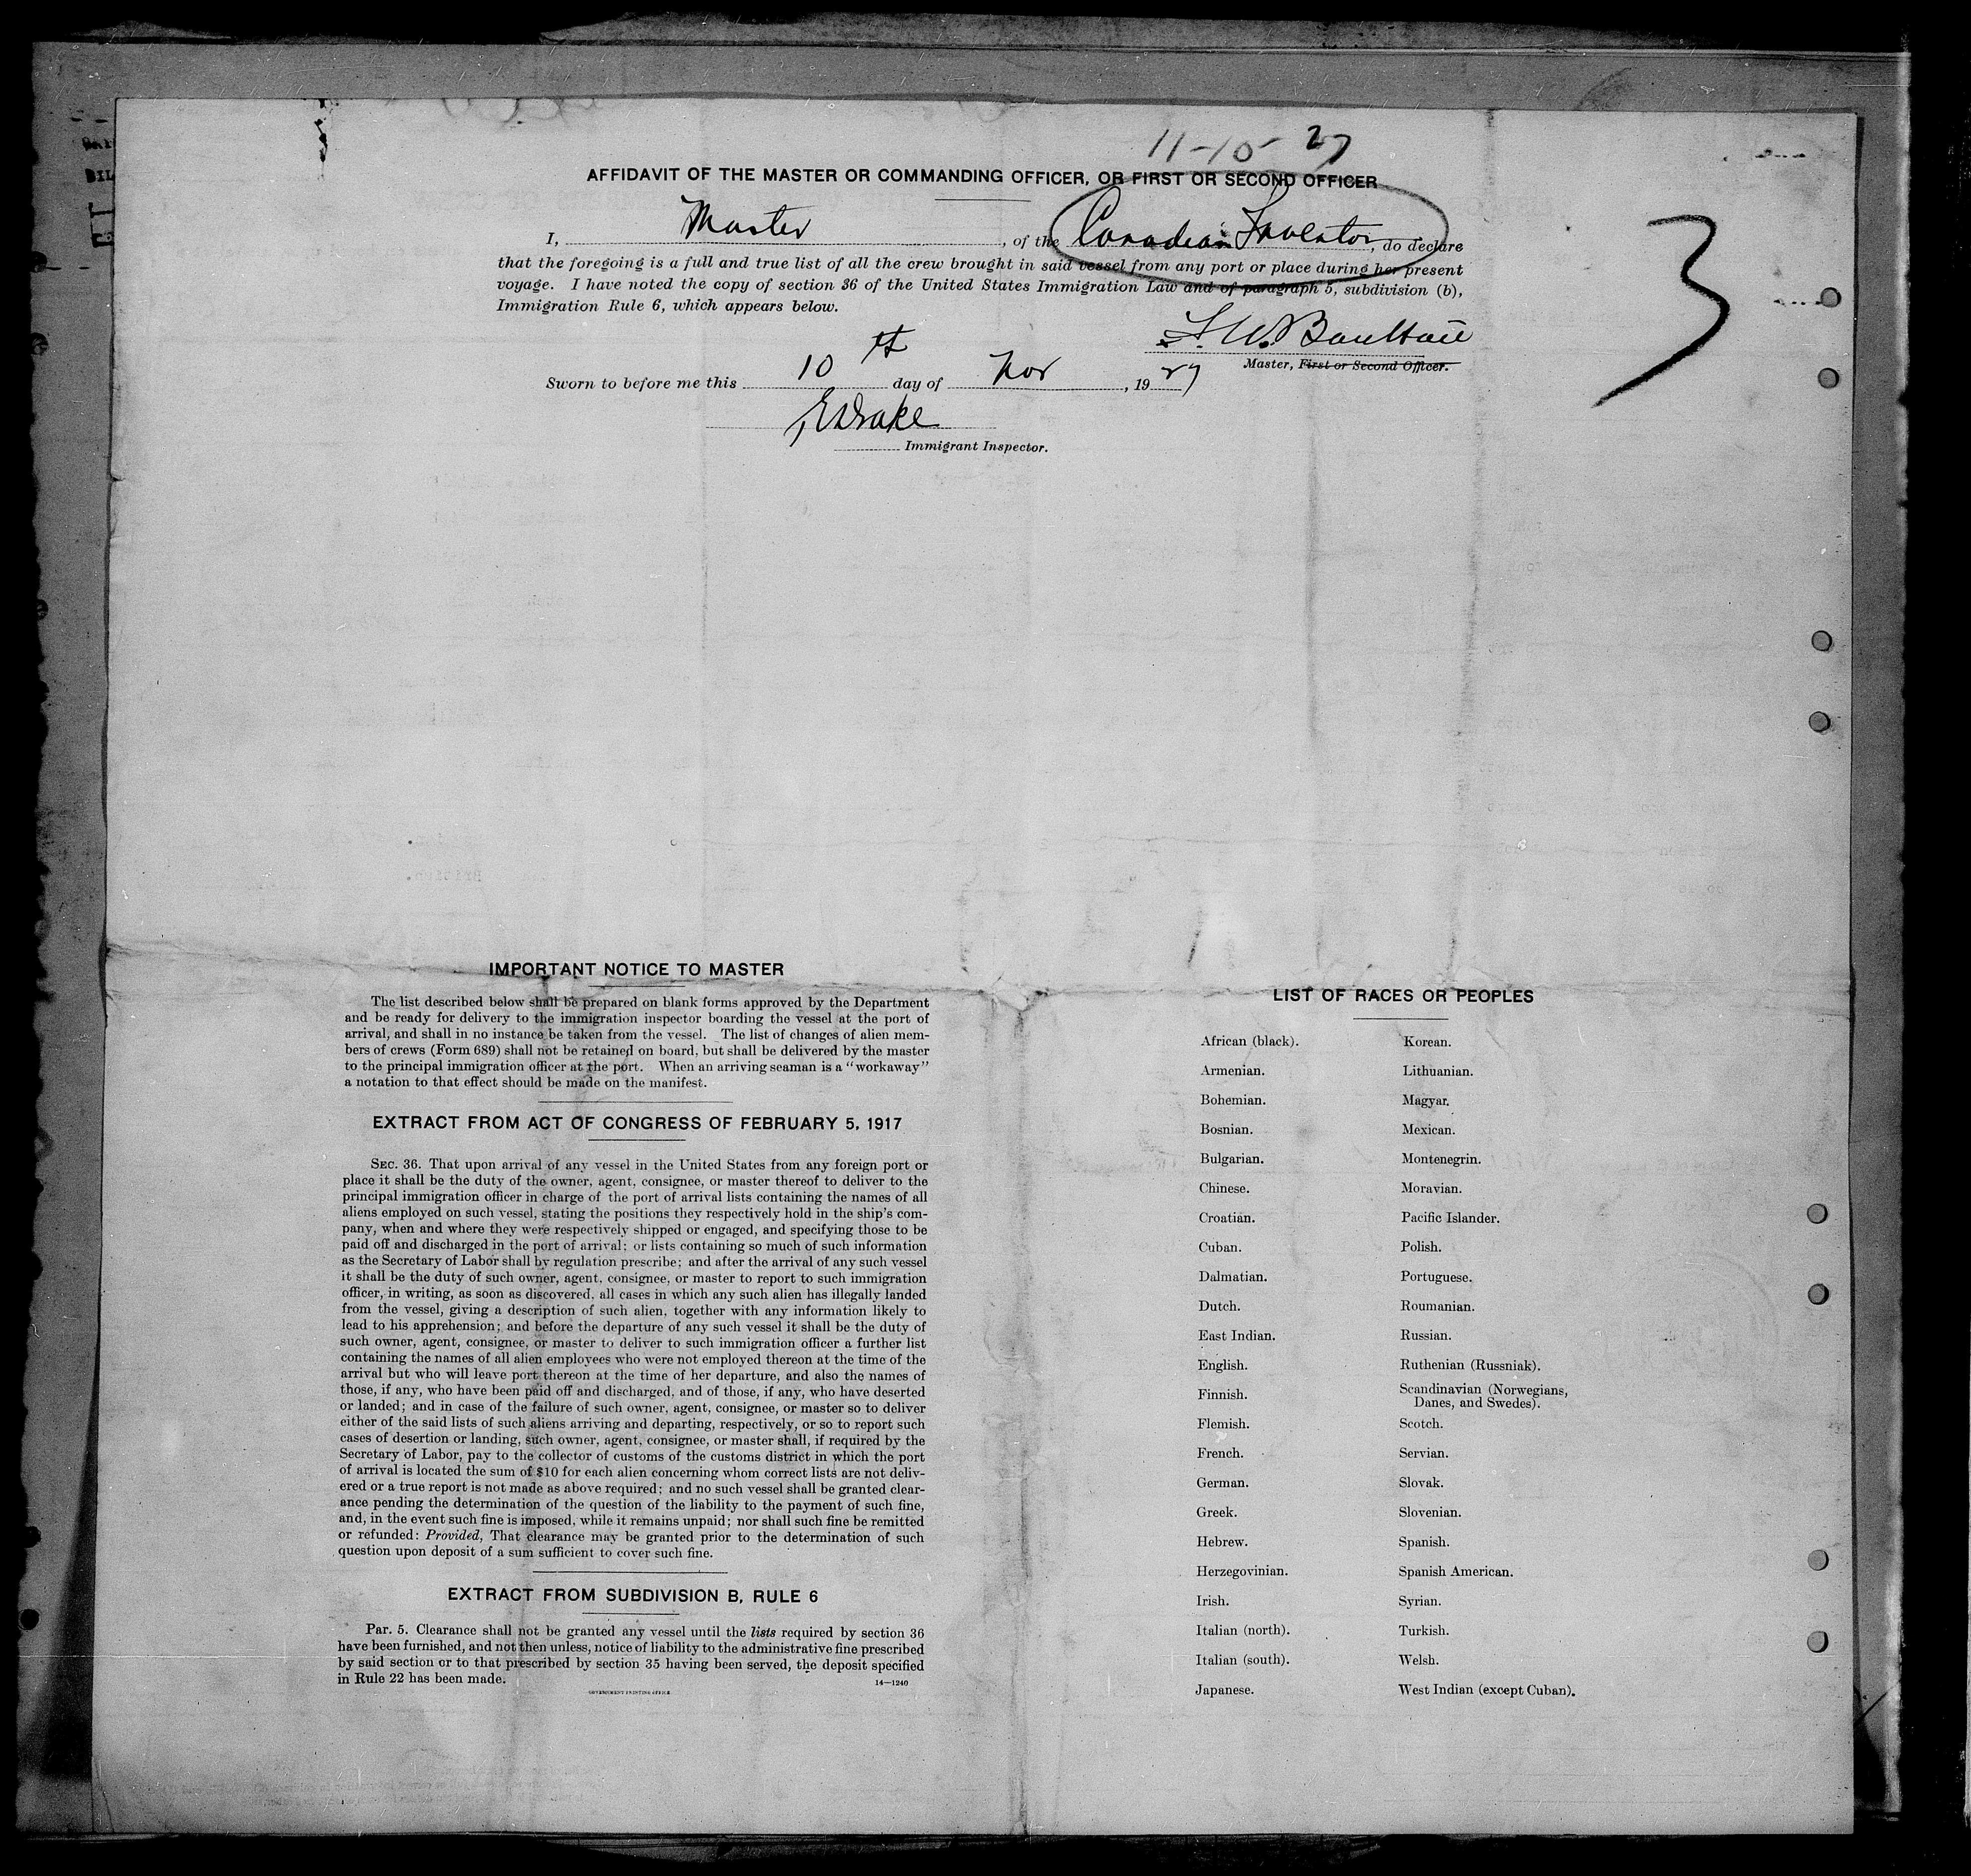 11-10-27
AFFIDAVIT OF THE MASTER OR COMMANDING OFFICER, OR FIRST OR SECOND OFFICER
I, Master, of the Canadian Inventor, do declare
that the foregoing is a full and true list of all the crew brought in said vessel from any port or place during her present
voyage. I have noted the copy of section 36 of the United States Immigration Law and of paragraph 5, subdivision (b),
Immigration Rule 6, which appears below.
3
Master, First or Second Officer.
Sworn to before me this 10th day of Nov, 1927
Drake
Immigrant Inspector.
IMPORTANT NOTICE TO MASTER
The list described below shall be prepared on blank forms approved by the Department
and be ready for delivery to the immigration inspector boarding the vessel at the port of
arrival, and shall in no instance be taken from the vessel. The list of changes of alien mem-
bers of crews (Form 689) shall not be retained on board, but shall be delivered by the master
to the principal immigration officer at the port. When an arriving seaman is a "workaway"
a notation to that effect should be made on the manifest.
EXTRACT FROM ACT OF CONGRESS OF FEBRUARY 5, 1917
SEC. 36. That upon arrival of any vessel in the United States from any foreign port or
place it shall be the duty of the owner, agent, consignee, or master thereof to deliver to the
principal immigration officer in charge of the port of arrival lists containing the names of all
aliens employed on such vessel, stating the positions they respectively hold in the ship's com-
pany, when and where they were respectively shipped or engaged, and specifying those to be
paid off and discharged in the port of arrival; or lists containing so much of such information
as the Secretary of Labor shall by regulation prescribe; and after the arrival of any such vessel
it shall be the duty of such owner, agent, consignee, or master to report to such immigration
officer, in writing, as soon as discovered, all cases in which any such alien has illegally landed
from the vessel, giving a description of such alien, together with any information likely to
lead to his apprehension; and before the departure of any such vessel it shall be the duty of
such owner, agent, consignee, or master to deliver to such immigration officer a further list
containing the names of all alien employees who were not employed thereon at the time of the
arrival but who will leave port thereon at the time of her departure, and also the names of
those, if any, who have been paid off and discharged, and of those, if any, who have deserted
or landed; and in case of the failure of such owner, agent, consignee, or master so to deliver
either of the said lists of such aliens arriving and departing, respectively, or so to report such
cases of desertion or landing, such owner, agent, consignee, or master shall, if required by the
Secretary of Labor, pay to the collector of customs of the customs district in which the port
of arrival is located the sum of $10 for each alien concerning whom correct lists are not deliv-
ered or a true report is not made as above required; and no such vessel shall be granted clear-
ance pending the determination of the question of the liability to the payment of such fine,
and, in the event such fine is imposed, while it remains unpaid; nor shall such fine be remitted
or refunded: Provided, That clearance may be granted prior to the determination of such
question upon deposit of a sum sufficient to cover such fine.
EXTRACT FROM SUBDIVISION B, RULE 6
Par. 5. Clearance shall not be granted any vessel until the lists required by section 36
have been furnished, and not then unless, notice of liability to the administrative fine prescribed
by said section or to that prescribed by section 35 having been served, the deposit specified
in Rule 22 has been made.
14—1240
GOVERNMENT PRINTING OFFICE
LIST OF RACES OR PEOPLES
African (black).
Armenian.
Bohemian.
Bosnian.
Bulgarian.
Chinese.
Croatian.
Cuban.
Dalmatian.
Dutch.
East Indian.
English.
Finnish.
Flemish.
French.
German.
Greek.
Hebrew.
Herzegovinian.
Irish.
Italian (north).
Italian (south).
Japanese.
Korean.
Lithuanian.
Magyar.
Mexican.
Montenegrin.
Moravian.
Pacific Islander.
Polish.
Portuguese.
Roumanian.
Russian.
Ruthenian (Russniak).
Scandinavian (Norwegians,
Danes, and Swedes).
Scotch.
Servian.
Slovak.
Slovenian.
Spanish.
Spanish American.
Syrian.
Turkish.
Welsh.
West Indian (except Cuban).